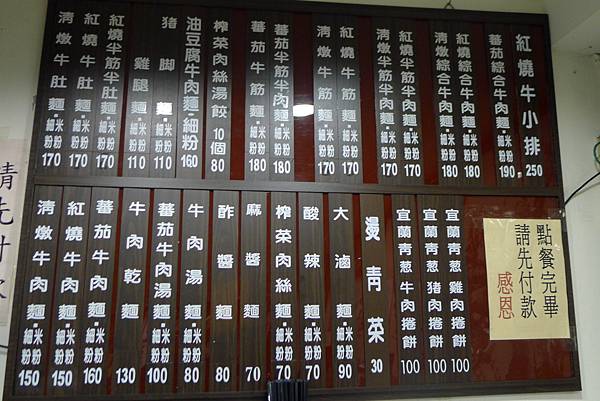 紅燒牛小排 250
蕃茄綜合牛肉麵·細粉米粉 190
紅燒綜合牛肉麵·細粉米粉 180
清燉綜合牛肉麵·細粉米粉 180
紅燒半筋半肉麵·細粉米粉 170
清燉半筋半肉麵·細粉米粉 170
紅燒牛筋麵·細粉米粉 170
清燉牛筋麵·細粉米粉 170
蕃茄半筋半肉麵·細粉米粉 180
蕃茄牛筋麵·細粉米粉 180
榨菜肉絲湯餃10個 80
油豆腐牛肉麵·細粉 160
豬脚麵·細粉米粉 110
雞腿麵·細粉米粉 110
紅燒半筋半肚麵·細粉米粉 170
紅燒牛肚麵·細粉米粉 170
清燉牛肚麵·細粉米粉 170
宜蘭青葱雞肉捲餅 100
宜蘭青葱豬肉捲餅 100
宜蘭青葱牛肉捲餅 100
燙青菜 30
大滷麵·細粉米粉 90
酸辣麵·細粉米粉 70
榨菜肉絲麵·細粉米粉 70
麻醬麵 70
酢醬麵 80
牛肉湯麵·細粉米粉 80
蕃茄牛肉湯麵·細粉米粉 100
牛肉乾麵 130
蕃茄牛肉麵·細粉米粉 160
紅燒牛肉麵·細粉米粉 150
清燉牛肉麵·細粉米粉 150
點餐完畢
請先付款
感恩
請先付款